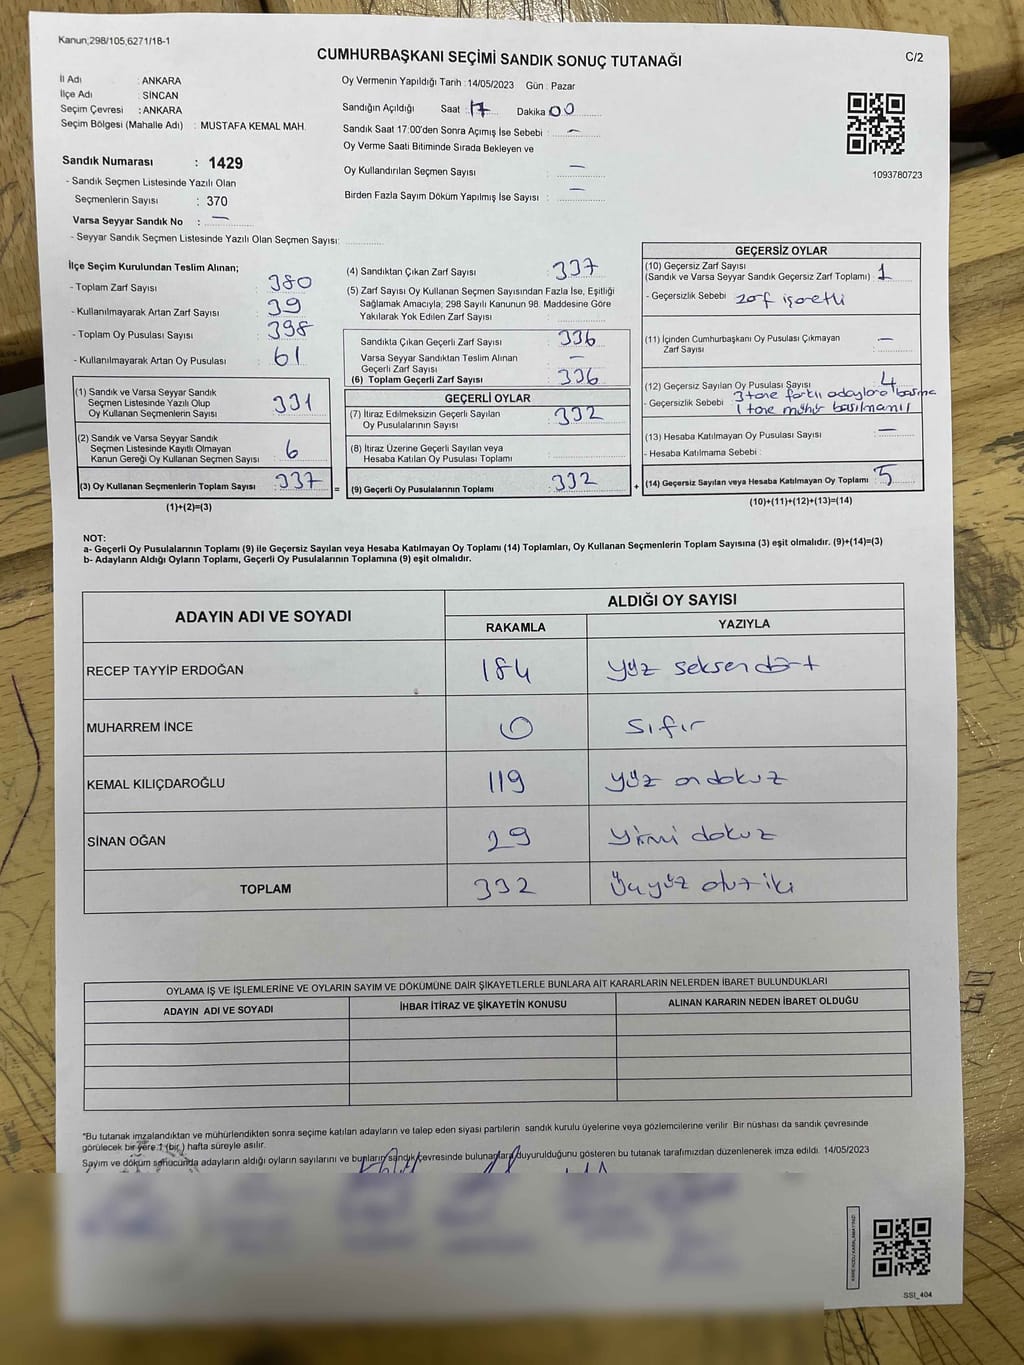 Kanun;298/105,6271/18-1
CUMHURBAŞKANI SEÇİMİ SANDIK SONUÇ TUTANAĞI
C/2
İl Adı : ANKARA
İlçe Adı : SİNCAN
Seçim Çevresi : ANKARA
Seçim Bölgesi (Mahalle Adı) : MUSTAFA KEMAL MAH.
Sandık Numarası : 1429
- Sandık Seçmen Listesinde Yazılı Olan
Seçmenlerin Sayısı : 370
Varsa Seyyar Sandık No : —
- Seyyar Sandık Seçmen Listesinde Yazılı Olan Seçmen Sayısı:
Oy Vermenin Yapıldığı Tarih : 14/05/2023 Gün : Pazar
Sandığın Açıldığı Saat : 17 Dakika : 00
Sandık Saat 17:00'den Sonra Açımış İse Sebebi : —
Oy Verme Saati Bitiminde Sırada Bekleyen ve
Oy Kullandırılan Seçmen Sayısı : —
Birden Fazla Sayım Döküm Yapılmış İse Sayısı : —
1093780723
İlçe Seçim Kurulundan Teslim Alınan;
- Toplam Zarf Sayısı : 380
- Kullanılmayarak Artan Zarf Sayısı : 39
- Toplam Oy Pusulası Sayısı : 398
- Kullanılmayarak Artan Oy Pusulası : 61
(1) Sandık ve Varsa Seyyar Sandık
Seçmen Listesinde Yazılı Olup
Oy Kullanan Seçmenlerin Sayısı : 331
(2) Sandık ve Varsa Seyyar Sandık
Seçmen Listesinde Kayıtlı Olmayan
Kanun Gereği Oy Kullanan Seçmen Sayısı : 6
(3) Oy Kullanan Seçmenlerin Toplam Sayısı : 337
(1)+(2)=(3)
(4) Sandıktan Çıkan Zarf Sayısı : 337
(5) Zarf Sayısı Oy Kullanan Seçmen Sayısından Fazla İse, Eşitliği
Sağlamak Amacıyla; 298 Sayılı Kanunun 98. Maddesine Göre
Yakılarak Yok Edilen Zarf Sayısı :
Sandıkta Çıkan Geçerli Zarf Sayısı : 336
Varsa Seyyar Sandıktan Teslim Alınan
Geçerli Zarf Sayısı : —
(6) Toplam Geçerli Zarf Sayısı : 336
GEÇERLİ OYLAR
(7) İtiraz Edilmeksizin Geçerli Sayılan
Oy Pusulalarının Sayısı : 332
(8) İtiraz Üzerine Geçerli Sayılan veya
Hesaba Katılan Oy Pusulası Toplamı :
= (9) Geçerli Oy Pusulalarının Toplamı : 332
GEÇERSİZ OYLAR
(10) Geçersiz Zarf Sayısı
(Sandık ve Varsa Seyyar Sandık Geçersiz Zarf Toplamı) : 1
- Geçersizlik Sebebi : zarf işaretli
(11) İçinden Cumhurbaşkanı Oy Pusulası Çıkmayan
Zarf Sayısı : —
(12) Geçersiz Sayılan Oy Pusulası Sayısı : 4
- Geçersizlik Sebebi : 3 tane farklı adaylara basma
1 tane mühür basılmamış
(13) Hesaba Katılmayan Oy Pusulası Sayısı : —
- Hesaba Katılmama Sebebi :
+ (14) Geçersiz Sayılan veya Hesaba Katılmayan Oy Toplamı : 5
(10)+(11)+(12)+(13)=(14)
NOT:
a- Geçerli Oy Pusulalarının Toplamı (9) ile Geçersiz Sayılan veya Hesaba Katılmayan Oy Toplamı (14) Toplamları, Oy Kullanan Seçmenlerin Toplam Sayısına (3) eşit olmalıdır. (9)+(14)=(3)
b- Adayların Aldığı Oyların Toplamı, Geçerli Oy Pusulalarının Toplamına (9) eşit olmalıdır.
ADAYIN ADI VE SOYADI
ALDIĞI OY SAYISI
RAKAMLA YAZIYLA
RECEP TAYYİP ERDOĞAN 184 yüz seksen dört
MUHARREM İNCE 0 sıfır
KEMAL KILIÇDAROĞLU 119 yüz on dokuz
SİNAN OĞAN 29 yirmi dokuz
TOPLAM 332 üçyüz otuz iki
OYLAMA İŞ VE İŞLEMLERİNE VE OYLARIN SAYIM VE DÖKÜMÜNE DAİR ŞİKAYETLERLE BUNLARA AİT KARARLARIN NELERDEN İBARET BULUNDUKLARI
ADAYIN ADI VE SOYADI İHBAR İTİRAZ VE ŞİKAYETİN KONUSU ALINAN KARARIN NEDEN İBARET OLDUĞU
"Bu tutanak imzalandıktan ve mühürlendikten sonra seçime katılan adayların ve talep eden siyasi partilerin sandık kurulu üyelerine veya gözlemcilerine verilir. Bir nüshası da sandık çevresinde
görülecek bir yere 1 (bir ) hafta süreyle asılır.
Sayım ve döküm sonucunda adayların aldığı oyların sayılarını ve bunların sandık çevresinde bulunanlara duyurulduğunu gösteren bu tutanak tarafımızdan düzenlenerek imza edildi. 14/05/2023
SSI_404